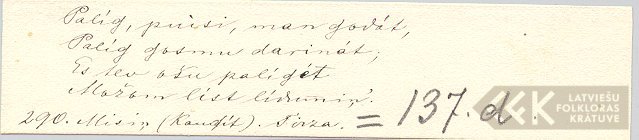 Palīg, pūisi, man godāt,
Palīg gosmu darināt;
Es tev ošu palīgēt
Mažam līst līdumiņ'.
290. Misiņ (Kaudzīt). Tirza. = 137. d
LATVIEŠU
FOLKLORAS
KRĀTUVE